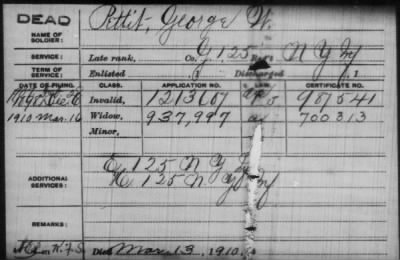 DEAD
NAME OF SOLDIER: Pettit, George W.
SERVICE: Late rank, Co. G, 125 Reg't N Y Inf
TERM OF SERVICE: Enlisted 1 Discharged 1
DATE OF FILING. CLASS. APPLICATION NO. LAW. CERTIFICATE NO.
Invalid, 1213107 907541
1910 Mar. 16 Widow, 937,997 700313
Minor,
ADDITIONAL SERVICES: E. 125 N Y Inf
H. 125 N Y Inf
REMARKS:
Died Mar. 13, 1910.